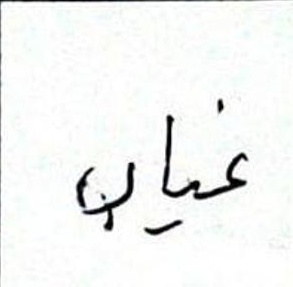 غياب